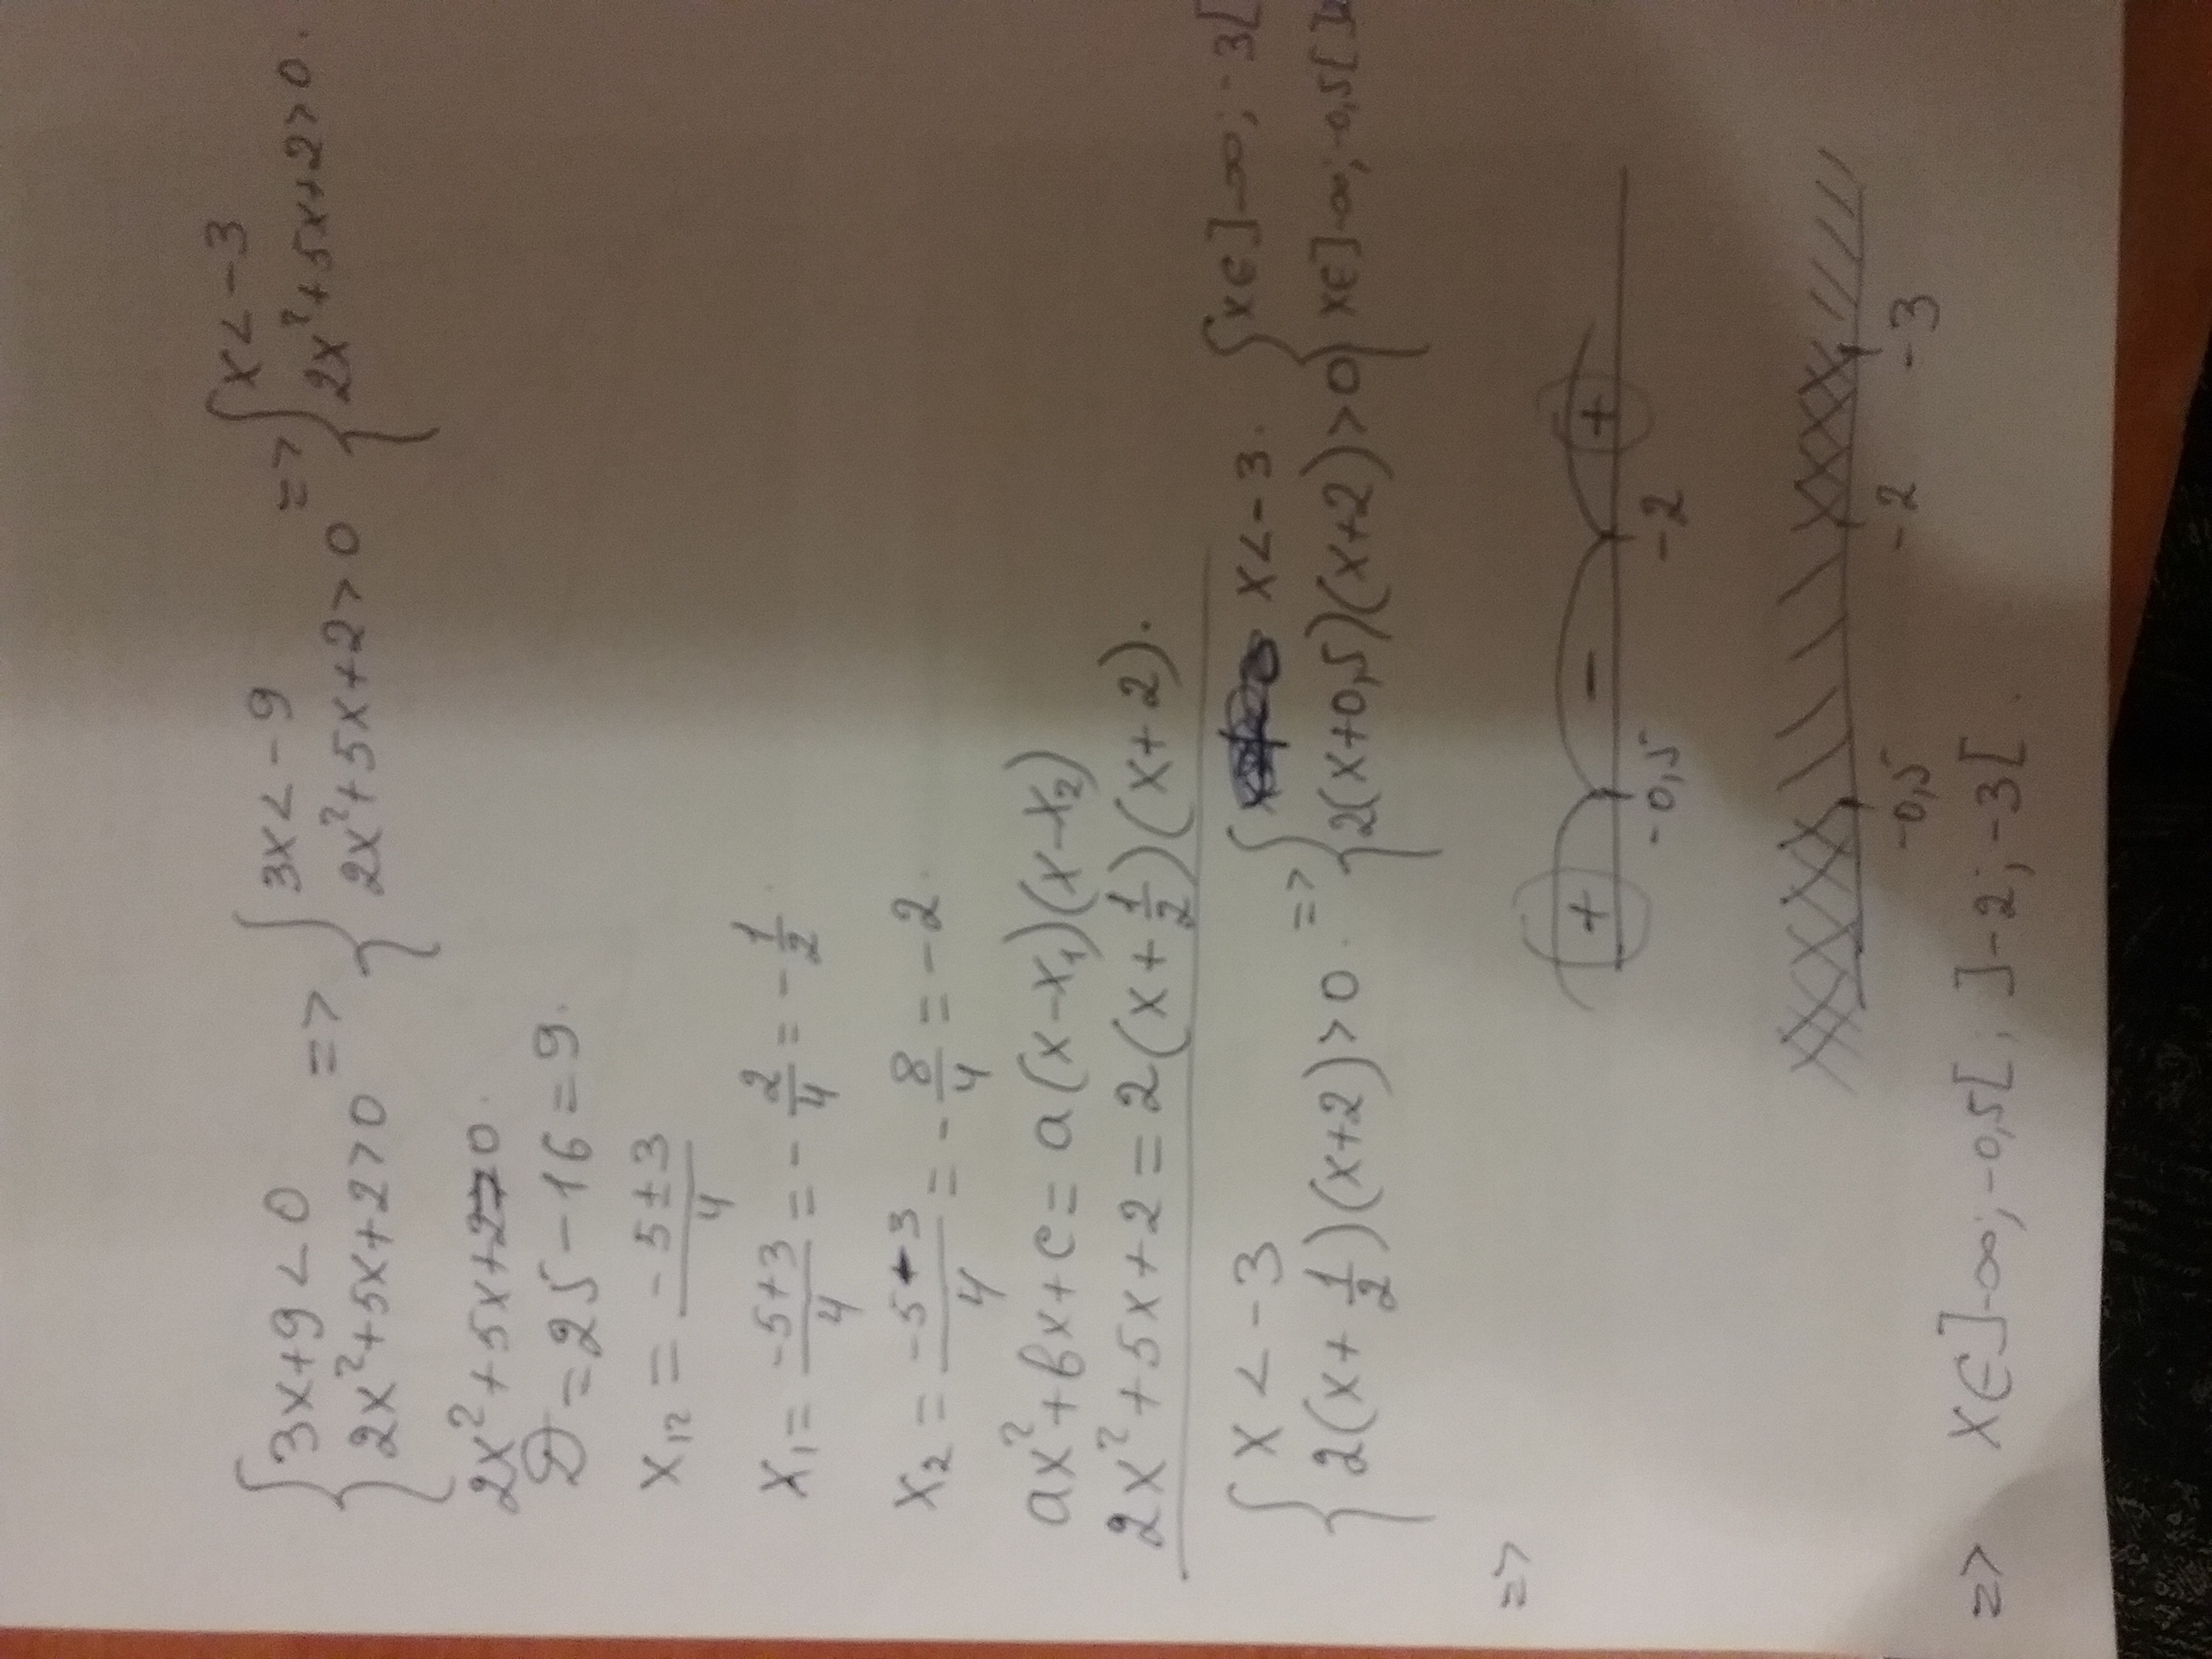 { 3x+9<0 => { 3x<-9 => { x<-3
2x²+5x+2>0 2x²+5x+2>0 2x²+5x+2>0.
2x²+5x+2=0.
D=25-16=9.
x₁₂ = (-5±3)/4
x₁ = (-5+3)/4 = -2/4 = -1/2.
x₂ = (-5-3)/4 = -8/4 = -2.
ax²+bx+c = a(x-x₁)(x-x₂)
2x²+5x+2 = 2(x+1/2)(x+2).
{ x<-3 => { x<-3. { x∈]-∞;-3[
2(x+1/2)(x+2)>0. 2(x+0,5)(x+2)>0 x∈]-∞;-0,5[
=>
+ - +
-0,5 -2
-0,5 -2 -3
=> x∈]-∞;-0,5[; ]-2;-3[.